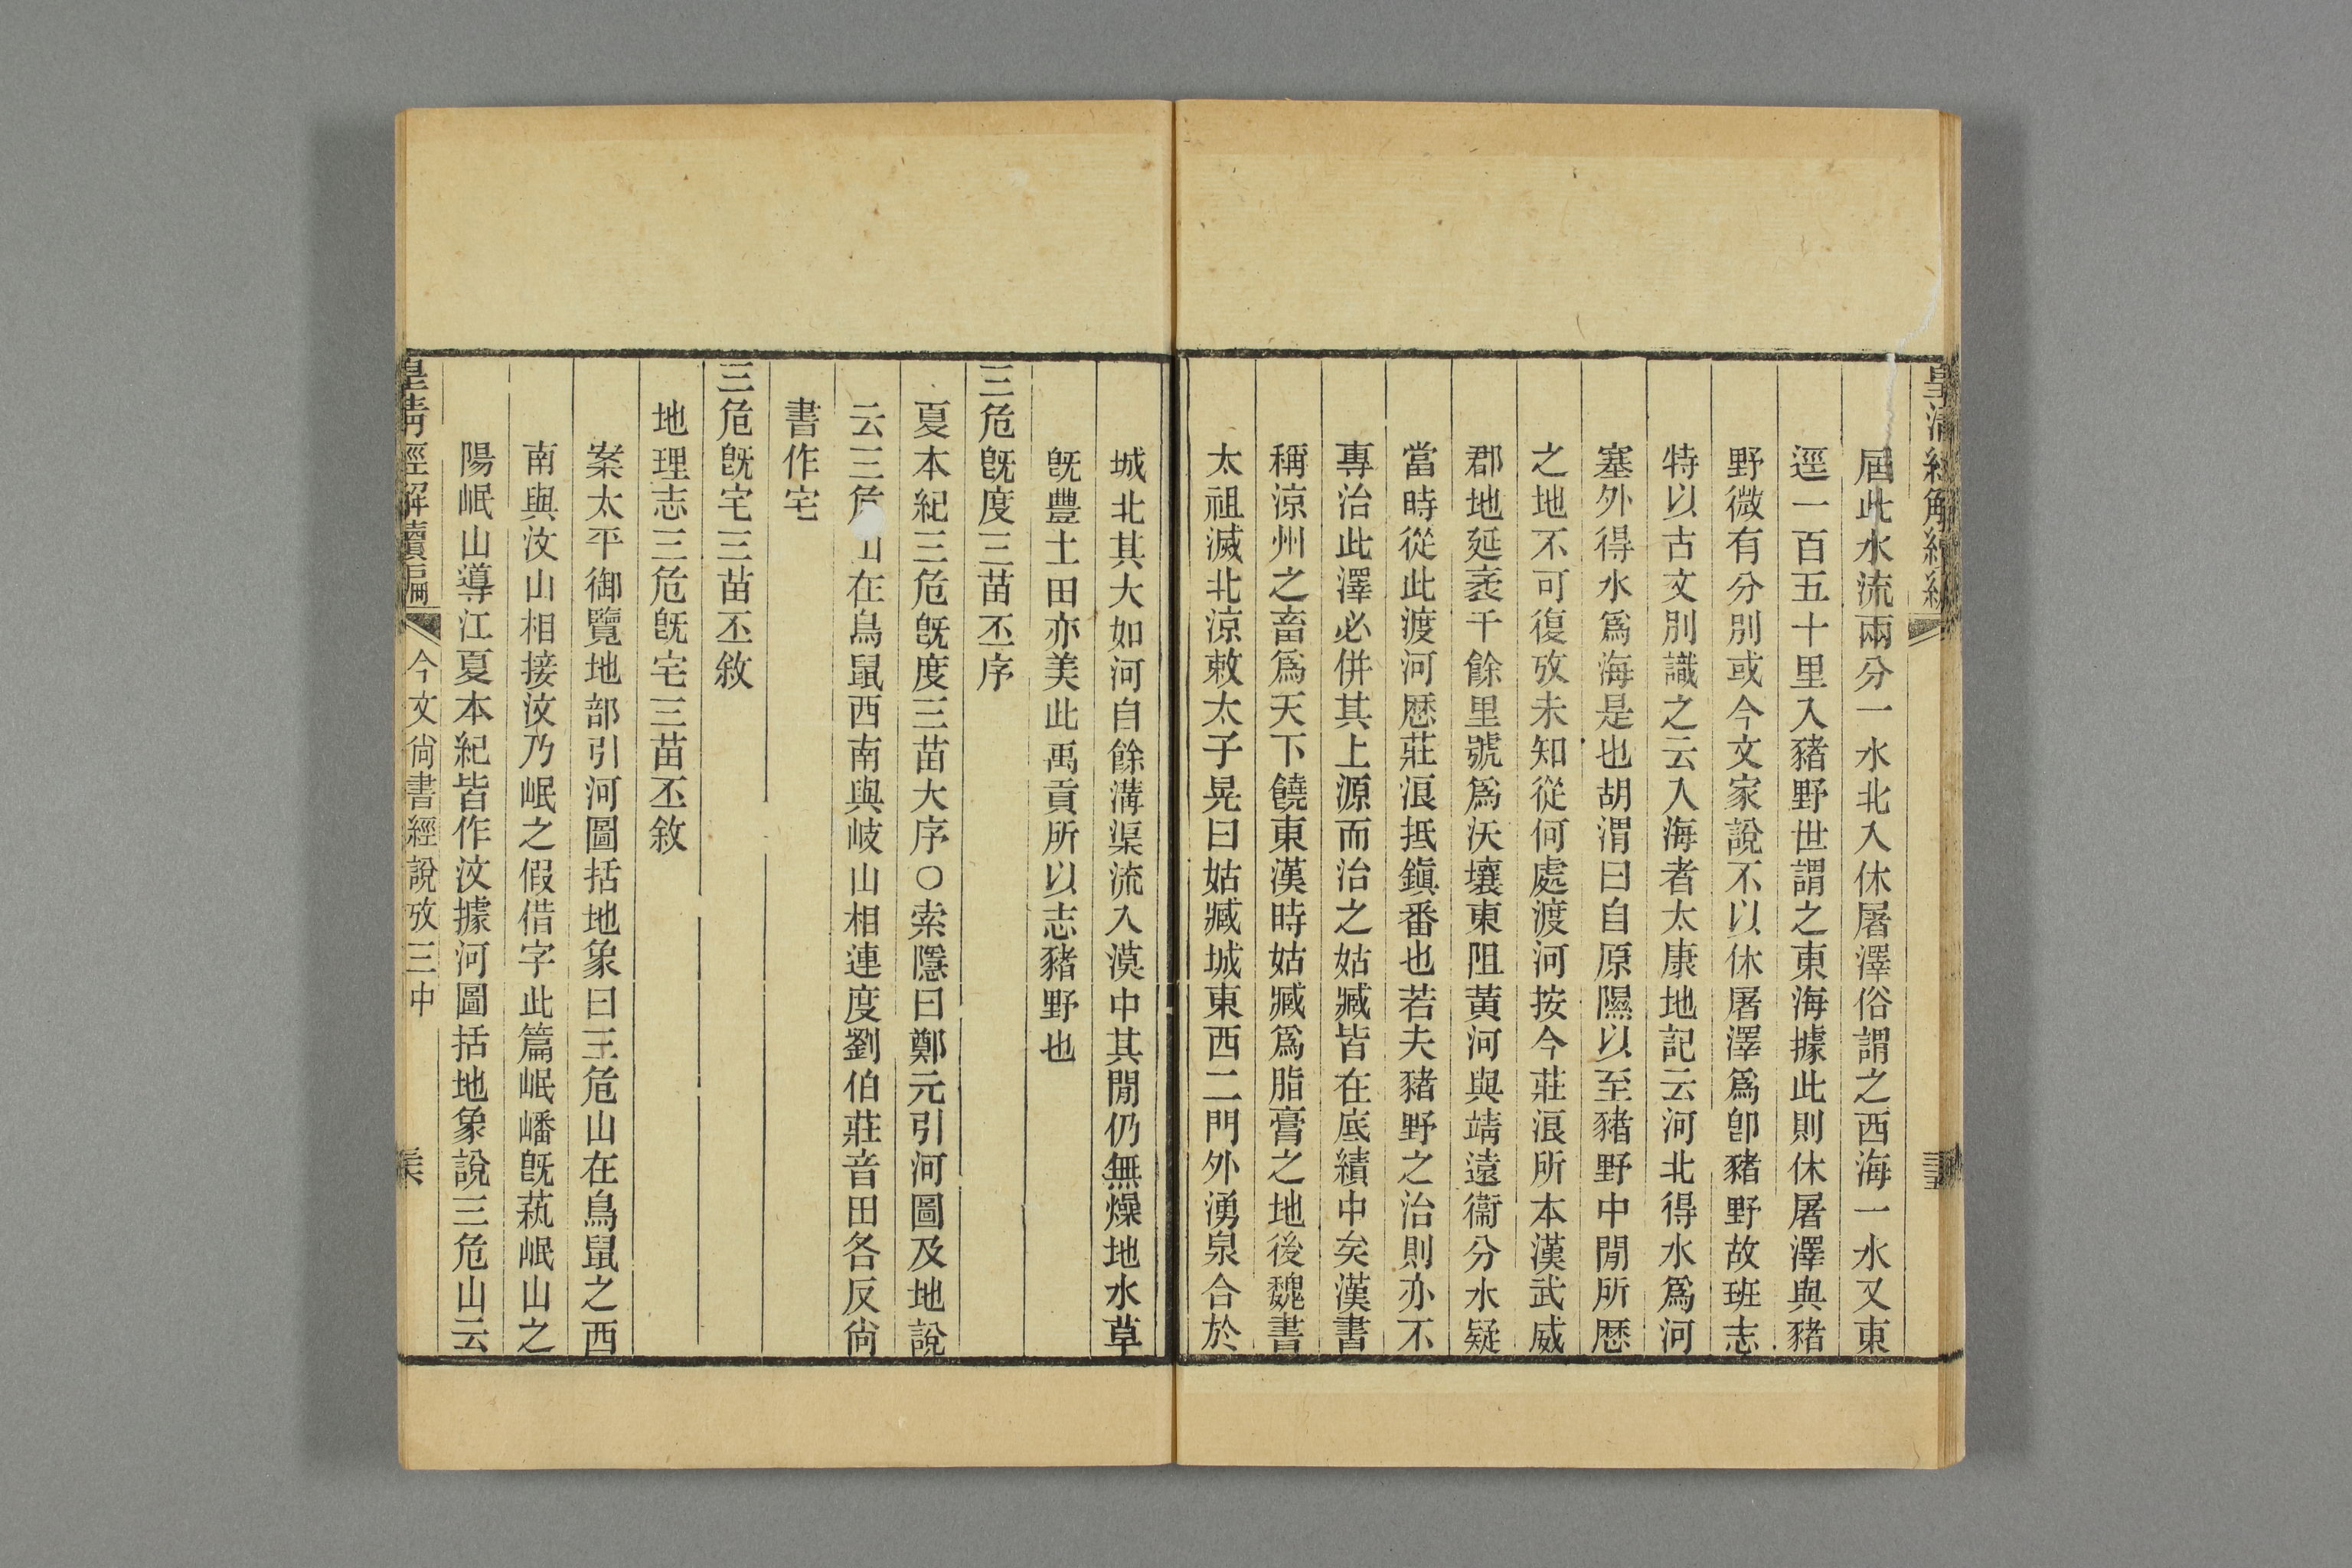 屆此水流兩分一水北入休屠澤俗謂之西海一水又東
逕一百五十里入豬野世謂之東海據此則休屠澤與豬
野微有分別或今文家說不以休屠澤爲卽豬野故班志
特以古文別識之云入海者太康地記云河北得水爲河
塞外得水爲海是也胡渭曰自原隰以至豬野中閒所歷
之地不可復攷未知從何處渡河按今莊浪所本漢武威
郡地延袤千餘里號爲沃壤東阻黃河與靖遠衞分水疑
當時從此渡河歷莊浪抵鎭番也若夫豬野之治則亦不
專治此澤必併其上源而治之姑臧皆在底績中矣漢書
稱涼州之畜爲天下饒東漢時姑臧爲脂膏之地後魏書
太祖滅北涼敕太子晃曰姑臧城東西二門外湧泉合於
城北其大如河自餘溝渠流入漠中其閒仍無燥地水草
旣豐土田亦美此禹貢所以志豬野也
三危旣度三苗丕序
夏本紀三危旣度三苗大序○索隱曰鄭元引河圖及地說
云三危山在鳥鼠西南與岐山相連度劉伯莊音田各反尙
書作宅
三危旣宅三苗丕敘
地理志三危旣宅三苗丕敘
案太平御覽地部引河圖括地象曰三危山在鳥鼠之西
南與汶山相接汶乃岷之假借字此篇岷嶓旣蓺岷山之
陽岷山導江夏本紀皆作汶據河圖括地象說三危山云
皇清經解續編
今文尙書經說攷三中